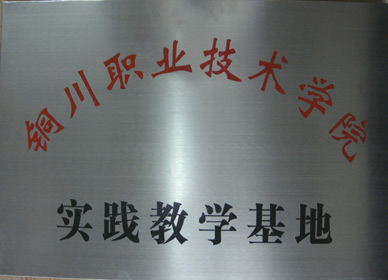 铜川职业技术学院
实践教学基地